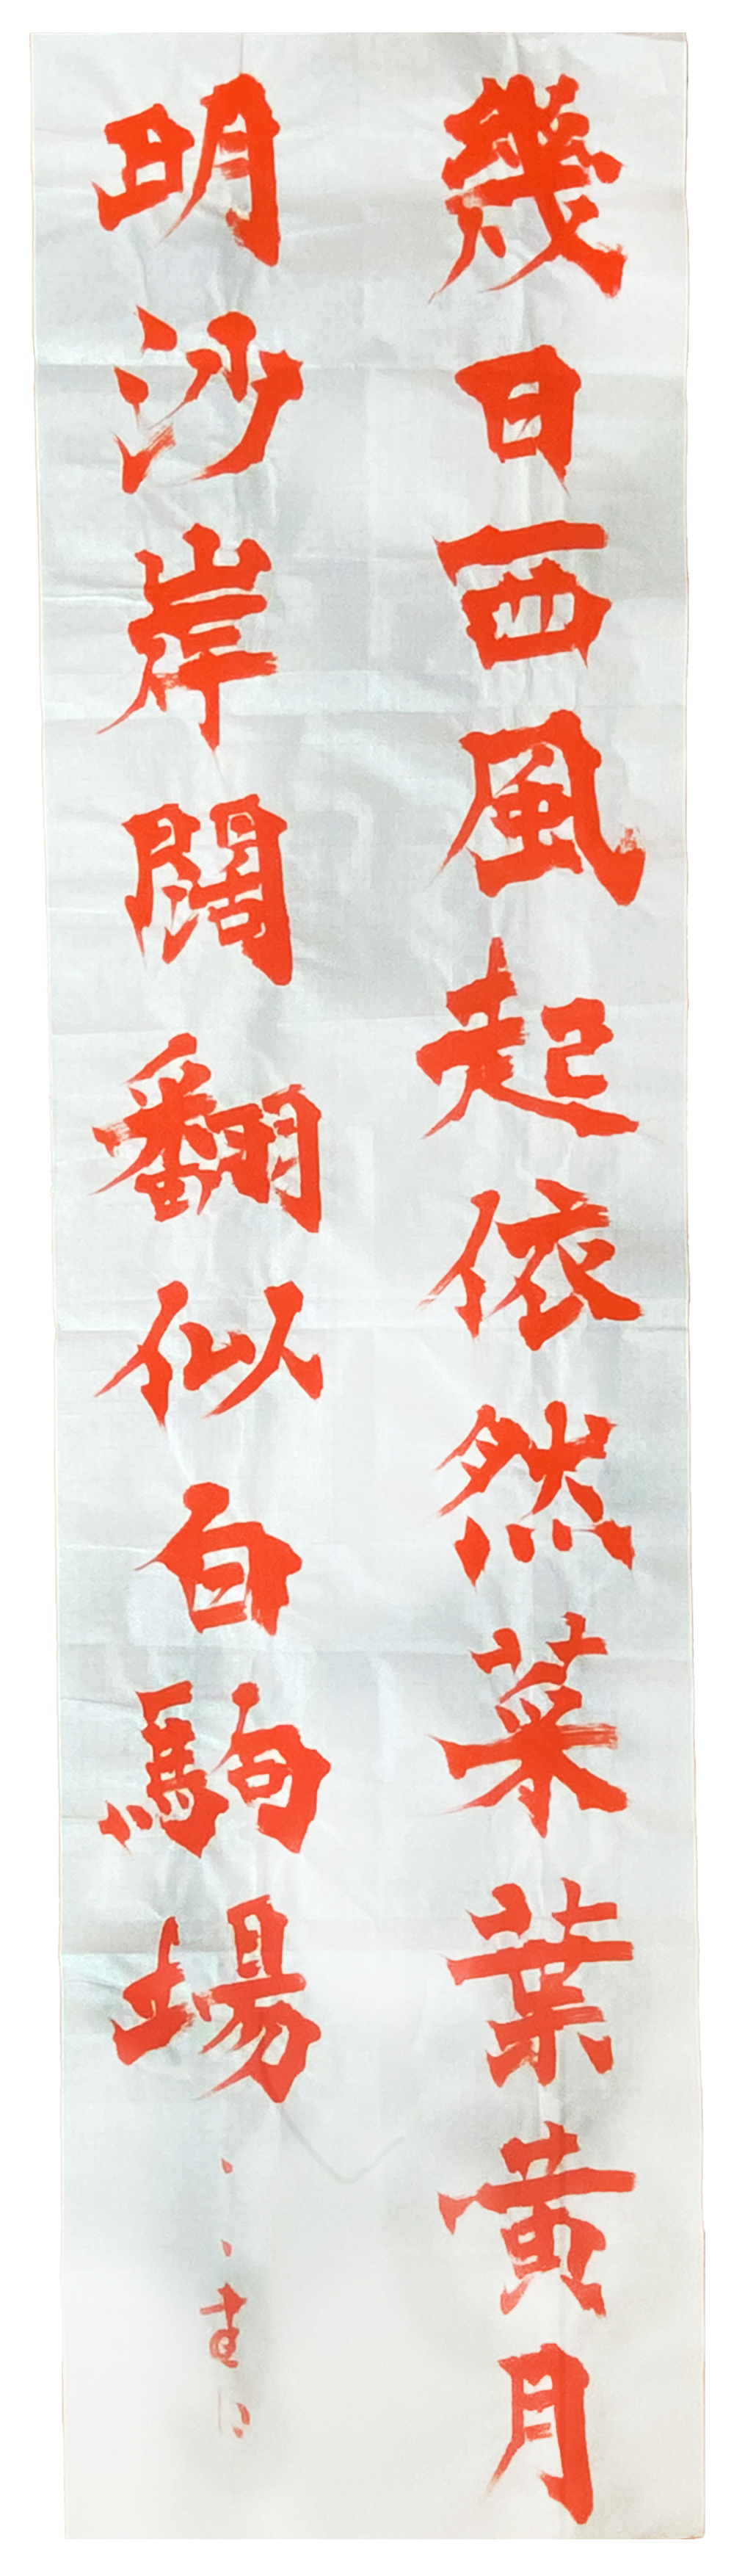 幾日西風起依然菜葉黄月
明沙岸闊翻似白駒場